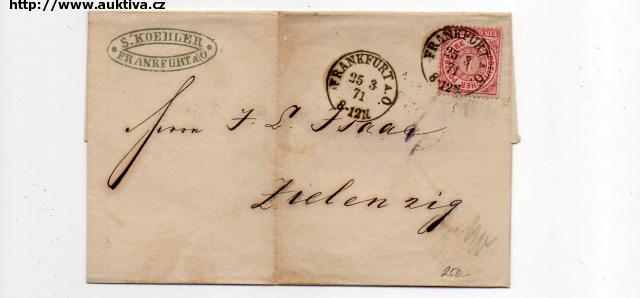 http://www.auktiva.cz
S. KOEHLER
FRANKFURT A/O
FRANKFURT A.O.
25 3
71
8-12N.
FRANKFURT A.O.
25 3
8-12N.
Herrn J. L. Isaac
Zielenzig
250.-